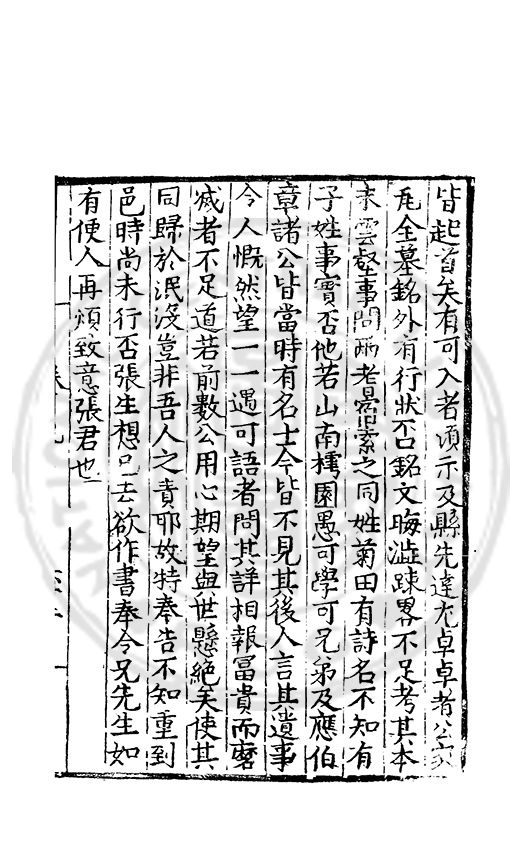 皆起首矣有可入者須示及縣先達尤卓卓者公家
尾全墓銘外有行狀否銘文晦澁踈畧不足考其本
末雲壑事問兩老景雲之同姓菊田有詩名不知有
子姓事實否他若山南樗園愚可學可兄弟及應伯
章諸公皆當時有名士今皆不見其後人言其遺事
令人慨然望一一遇可語者問其詳相報冨貴而磨
滅者不足道若前數公用心期望與世懸絶矣使其
同歸於泯没豈非吾人之責耶故特奉告不知重到
邑時尚未行否張生想已去欲作書奉令兄先生如
有便人再煩致意張君也